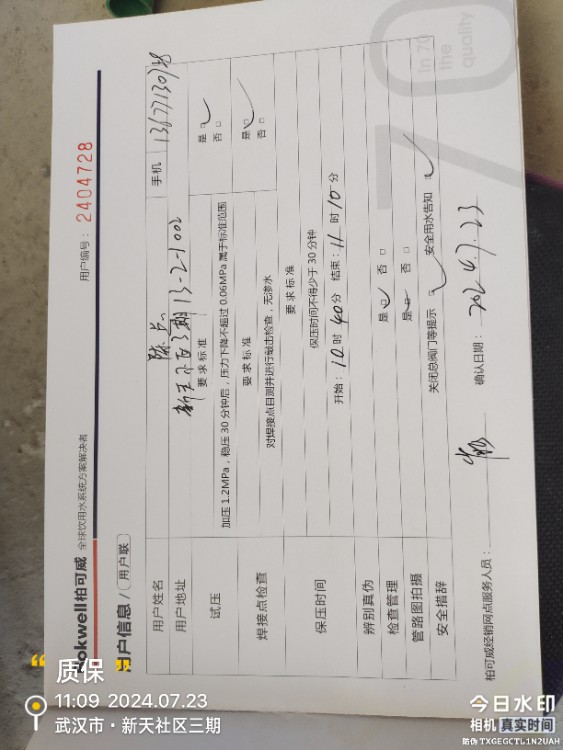 Rokwell柏可威 全球饮用水系统方案解决者
用户编号：2404728
用户信息/(用户联)
用户姓名 陈 手机
用户地址 13-2-1002
要求标准
试压 加压1.2MPa，稳压30分钟后，压力下降不超过0.06MPa属于标准范围 是□ 否□
要求标准
焊接点检查 对焊接点目测并进行敲击检查，无渗水 是□ 否□
要求标准
保压时间 保压时间不得少于30分钟
开始：10时40分 结束：11时10分
辨别真伪
检查管理 是□ 否□
管路图拍摄 是□ 否□
安全措辞 关闭总阀门等提示 安全用水告知
柏可威经销网点服务人员： 确认日期：2024.7.23
70
In 70
the
quality
质保
11:09 2024.07.23
武汉市·新天社区三期
今日水印
相机 真实时间
防伪 TXGEGCTU1N2UAH